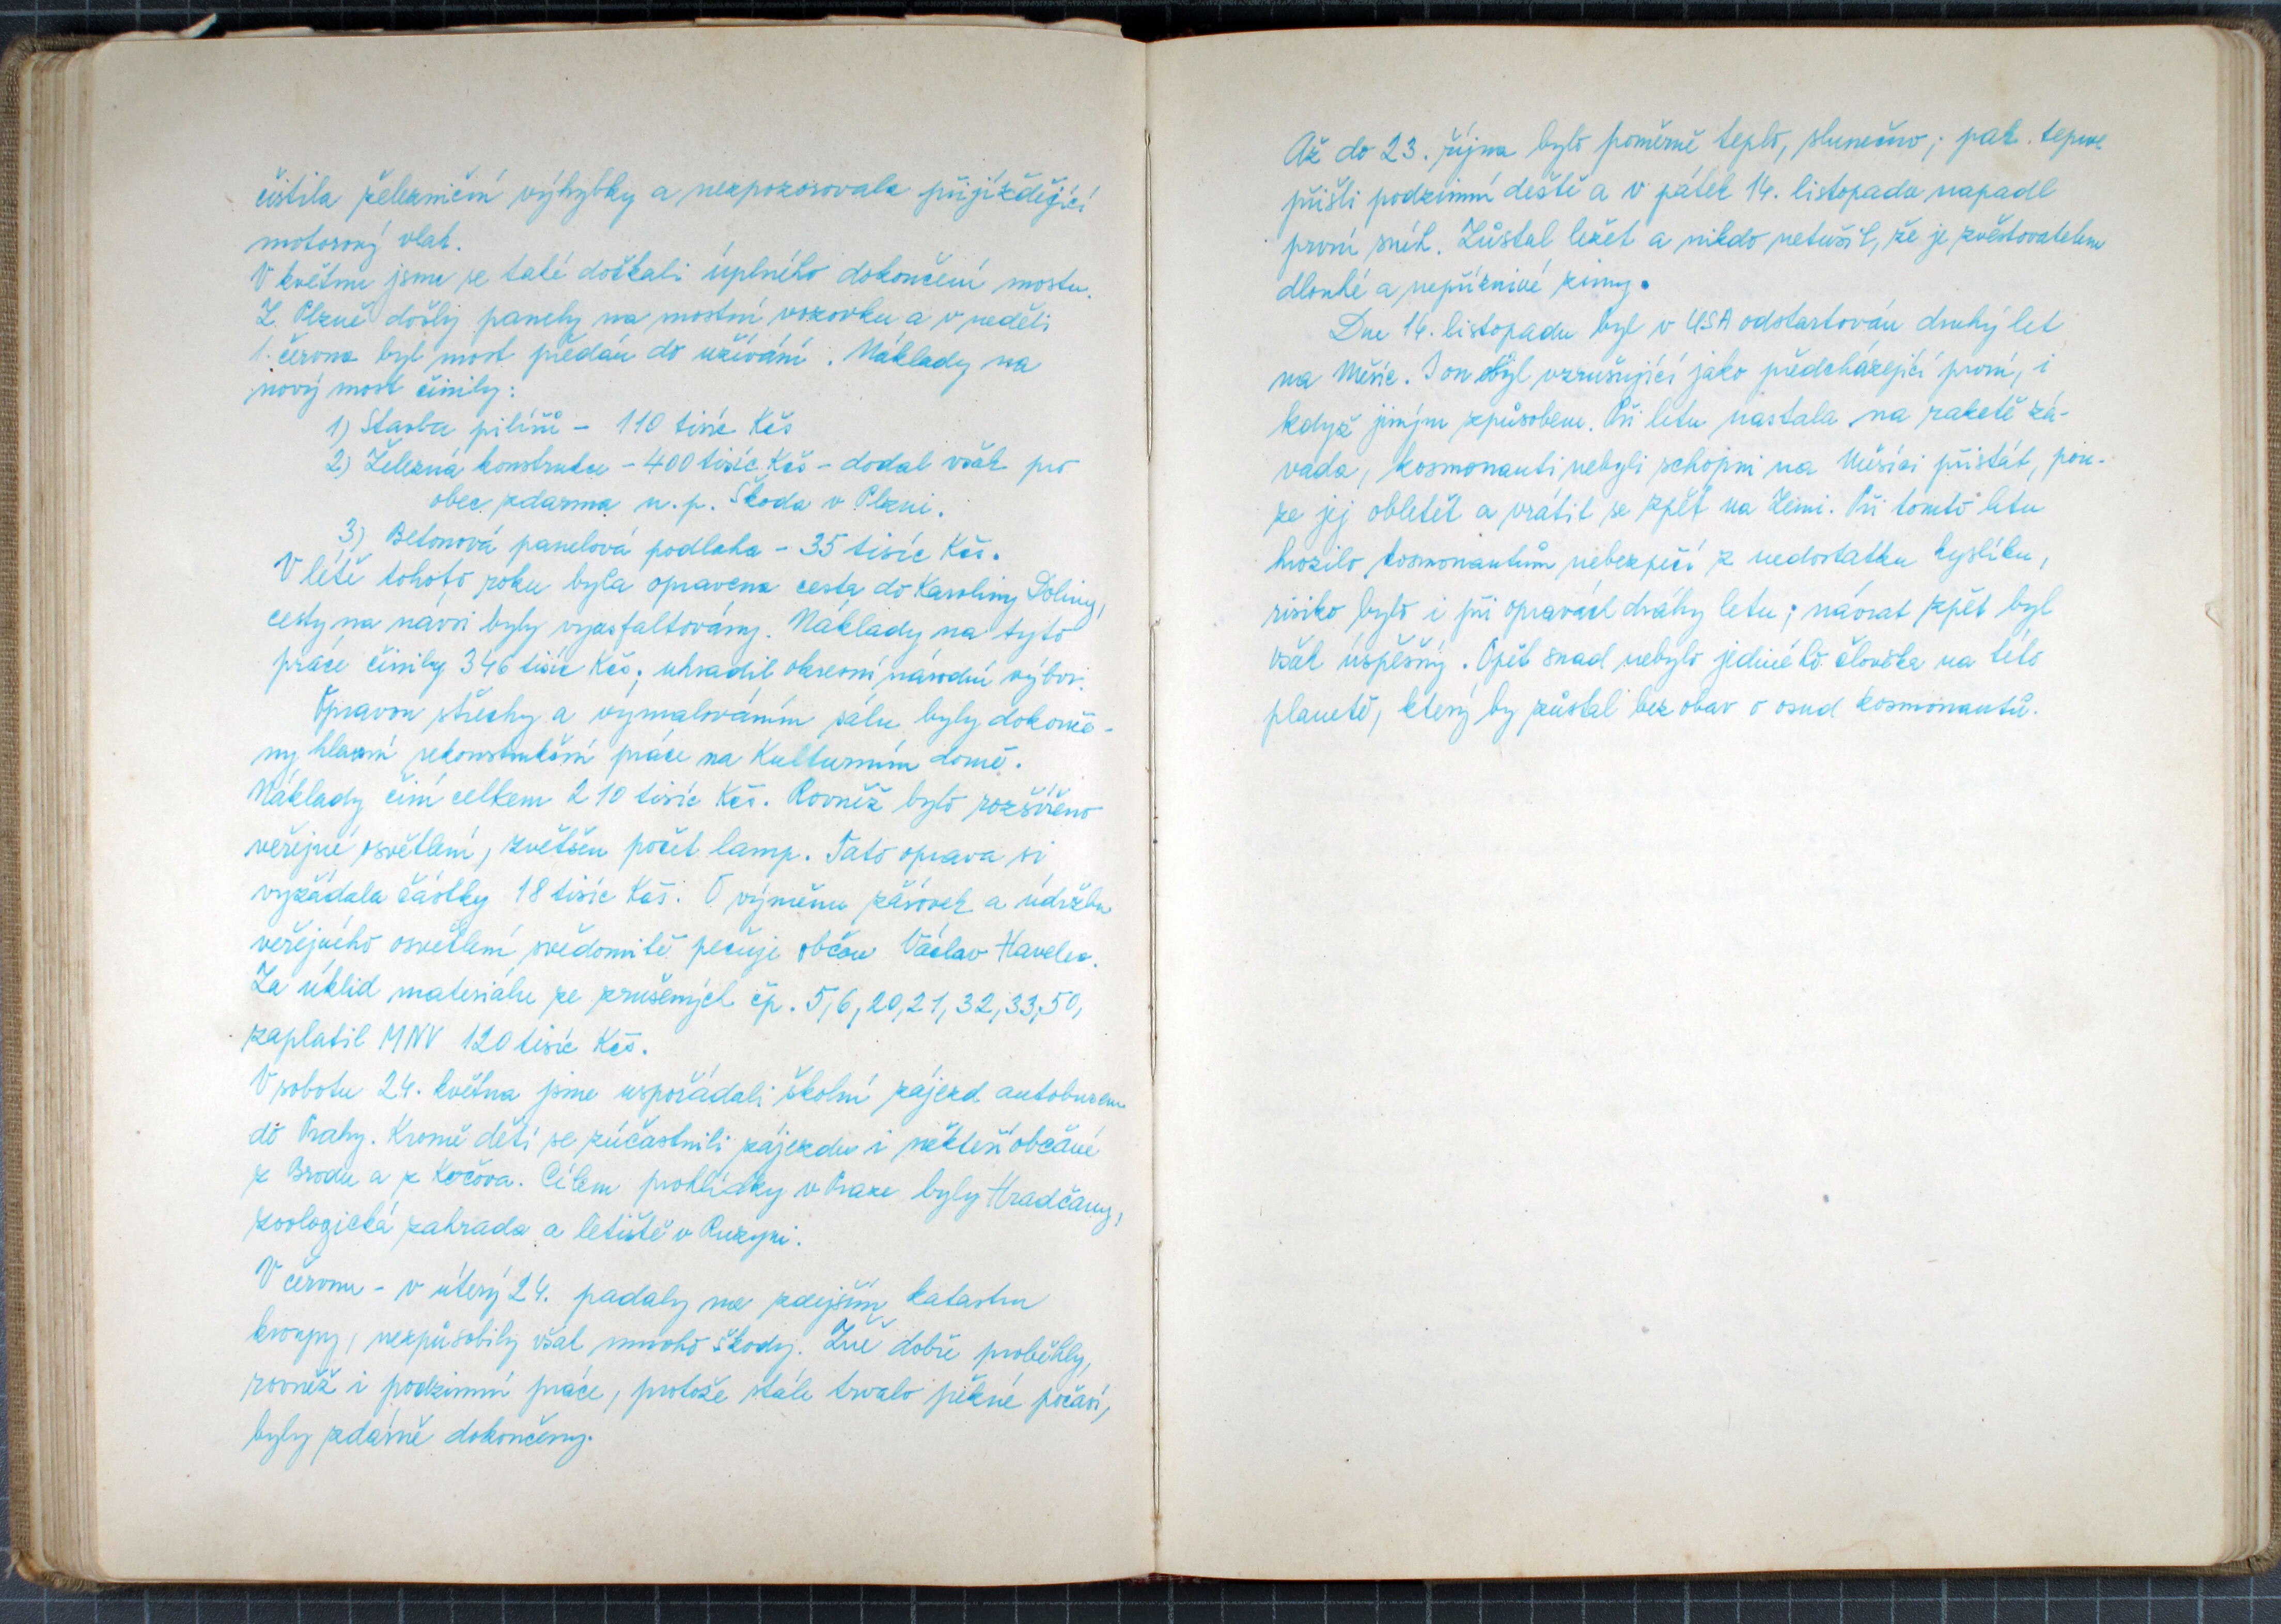 čistila železniční výhybky a nezpozorovala přijíždějící
motorový vlak.
V květnu jsme se také dočkali úplného dokončení mostu.
Z Plzně došly panely na mostní vozovku a v neděli
1. června byl most předán do užívání. Náklady na
nový most činily:
1) Stavba pilířů - 110 tisíc Kčs
2) Železná konstrukce - 400 tisíc Kčs - dodal však pro
obec zdarma n. p. Škoda v Plzni.
3) Betonová panelová podlaha - 35 tisíc Kčs.
V létě tohoto roku byla opravena cesta do Karoliny Doliny,
cesty na návsi byly vyasfaltovány. Náklady na tyto
práce činily 346 tisíc Kčs; uhradil okresní národní výbor.
Opravou střechy a vymalováním sálu byly dokonče-
ny hlavní rekonstrukční práce na Kulturním domě.
Náklady činí celkem 210 tisíc Kčs. Rovněž bylo rozšířeno
veřejné osvětlení, zvětšen počet lamp. Tato oprava si
vyžádala částky 18 tisíc Kčs. O výměnu žárovek a údržbu
veřejného osvětlení svědomitě pečuje občan Václav Havelec.
Za úklid materiálu ze zrušených čp. 5, 6, 20, 21, 32, 33, 50,
zaplatil MNV 120 tisíc Kčs.
V sobotu 24. května jsme uspořádali školní zájezd autobusem
do Prahy. Kromě dětí se zúčastnili zájezdu i někteří občané
z Brodu a z Kočova. Cílem prohlídky v Praze byly Hradčany,
zoologická zahrada a letiště v Ruzyni.
V červnu - v úterý 24. padaly na zdejším katastru
kroupy, nezpůsobily však mnoho škody. Žně dobře proběhly,
rovněž i podzimní práce, protože stále trvalo pěkné počasí,
byly zdárně dokončeny.
Až do 23. října bylo poměrně teplo, slunečno; pak teprve
přišli podzimní deště a v pátek 14. listopadu napadl
první sníh. Zůstal ležet a nikdo netušil, že je zvěstovatelem
dlouhé a nepříznivé zimy.
Dne 14. listopadu byl v USA odstartován druhý let
na Měsíc. I on byl vzrušující jako předcházející první, i
když jiným způsobem. Při letu nastala na raketě zá-
vada, kosmonauti nebyli schopni na Měsíci přistát, pou-
ze jej obletět a vrátit se zpět na Zemi. Při tomto letu
hrozilo kosmonautům nebezpečí z nedostatku kyslíku,
risiko bylo i při opravách dráhy letu; návrat zpět byl
však úspěšný. Opět snad nebylo jediného člověka na této
planetě, který by zůstal bez obav o osud kosmonautů.